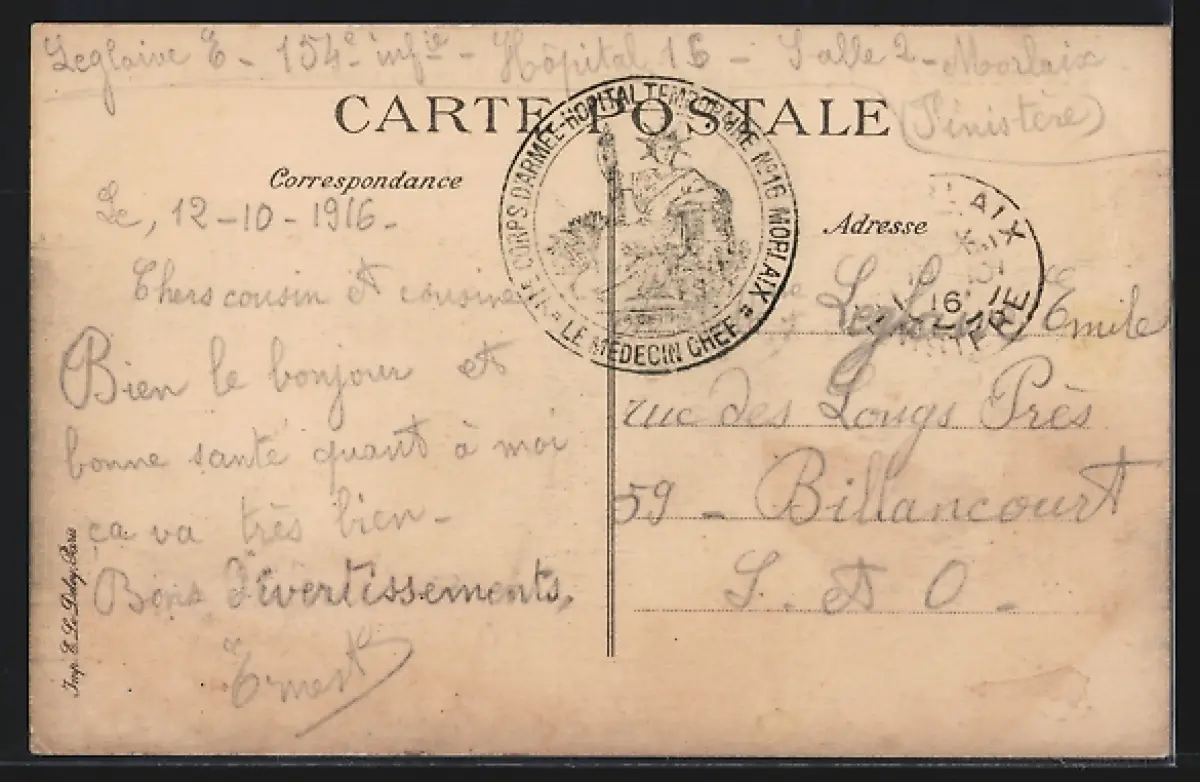 Leglaive E - 154e infie - Hôpital 16 - Salle 2 - Morlaix
(Finistère)
CARTE POSTALE
Correspondance
Le, 12-10-1916.
Chers cousin et cousine
Bien le bonjour et
bonne santé quant à moi
ça va très bien -
Bons divertissements,
Ernest
Imp. E. Le Deley, Paris
CORPS D'ARMÉE HOPITAL TEMPORAIRE N°16 MORLAIX
LE MÉDECIN CHEF
Adresse
AIX
16
Leglaive Emile
rue des Longs Près
59 - Billancourt
S. et O.